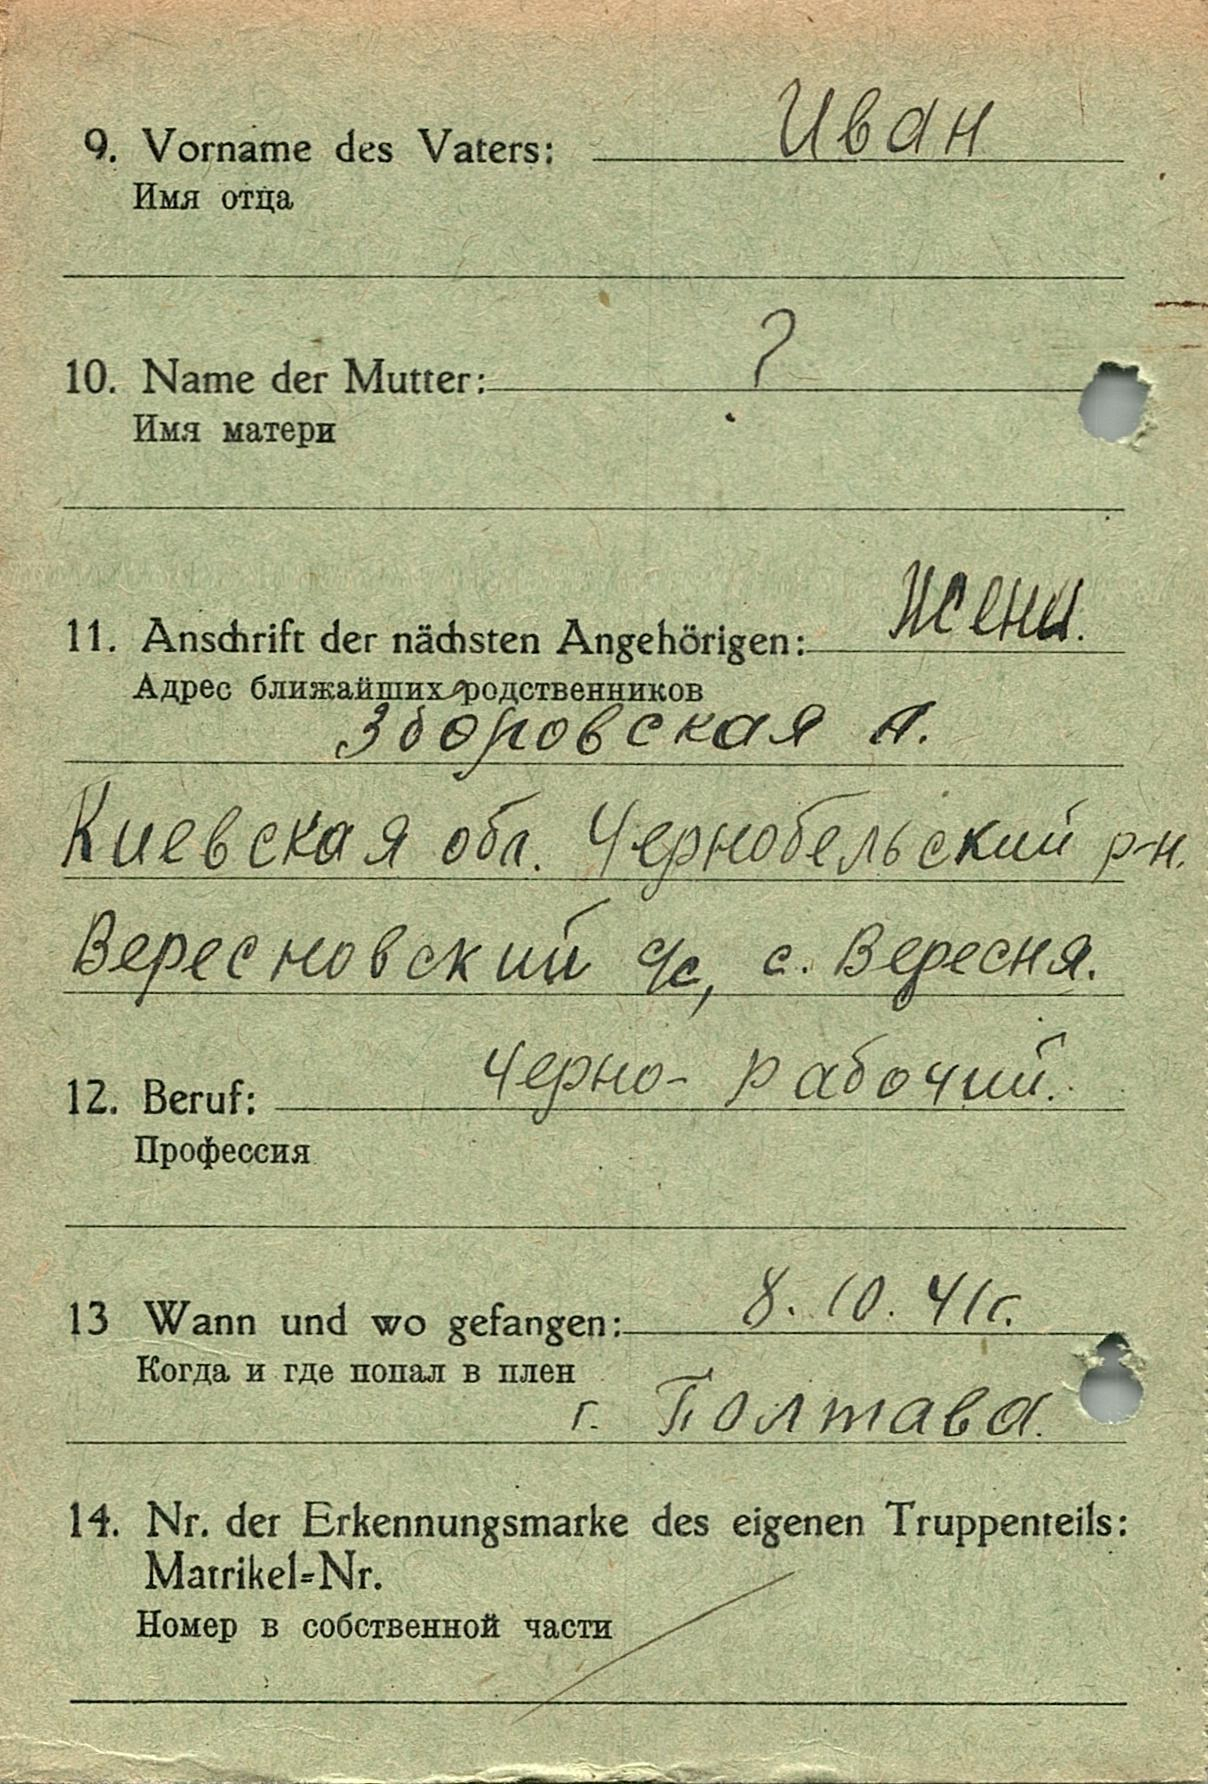 9. Vorname des Vaters: Иван
Имя отца
10. Name der Mutter: ?
Имя матери
11. Anschrift der nächsten Angehörigen: Жены.
Адрес ближайших родственников
Зборовская А.
Киевская обл. Чернобельский р-н.
Вересновский с/с, с. Вересня.
12. Beruf: Черно-рабочий.
Профессия
13 Wann und wo gefangen: 8. 10. 41г.
Когда и где попал в плен
г. Полтава.
14. Nr. der Erkennungsmarke des eigenen Truppenteils:
Matrikel=Nr.
Номер в собственной части